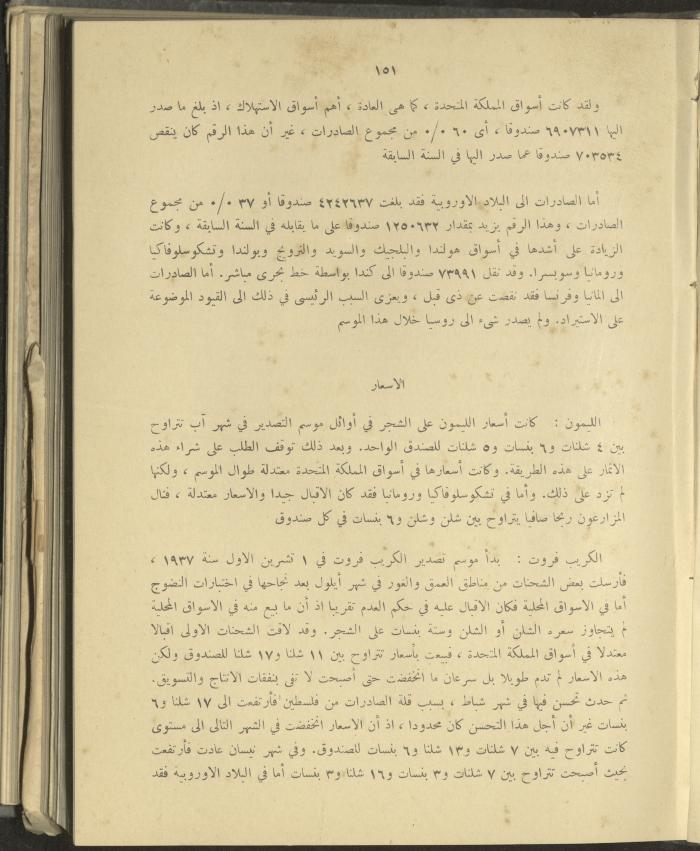 ١٥١
ولقد كانت أسواق المملكة المتحدة ، كما هى العادة ، أهم أسواق الاستهلاك ، اذ بلغ ما صدر
اليها ٦٩٠٧٣١١ صندوقا ، أى ٦٠ ٠/٠ من مجموع الصادرات ، غير أن هذا الرقم كان ينقص
٧٠٣٥٣٤ صندوقا عما صدر اليها في السنة السابقة
أما الصادرات الى البلاد الاوروبية فقد بلغت ٤٢٤٢٦٣٧ صندوقا أو ٣٧ ٠/٠ من مجموع
الصادرات ، وهذا الرقم يزيد بمقدار ١٢٥٠٦٣٢ صندوقا على ما يقابله في السنة السابقة ، وكانت
الزيادة على أشدها في أسواق هولندا والبلجيك والسويد والنرويج وبولندا وتشكوسلوفاكيا
ورومانيا وسويسرا. وقد نقل ٧٣٩٩١ صندوقا الى كندا بواسطة خط بحرى مباشر. أما الصادرات
الى المانيا وفرنسا فقد نقصت عن ذى قبل ، ويعزى السبب الرئيسى في ذلك الى القيود الموضوعة
على الاستيراد. ولم يصدر شىء الى روسيا خلال هذا الموسم
الاسعار
الليمون : كانت أسعار الليمون على الشجر في أوائل موسم التصدير في شهر آب تتراوح
بين ٤ شلنات و٦ بنسات و٥ شلنات للصندق الواحد. وبعد ذلك توقف الطلب على شراء هذه
الاثمار على هذه الطريقة. وكانت أسعارها في أسواق المملكة المتحدة معتدلة طوال الموسم ، ولكنها
لم تزد على ذلك. وأما في تشكوسلوفاكيا ورومانيا فقد كان الاقبال جيدا والاسعار معتدلة ، فنال
المزارعون ربحا صافيا يتراوح بين شلن وشلن و٦ بنسات في كل صندوق
الكريب فروت : بدأ موسم تصدير الكريب فروت في ١ تشرين الاول سنة ١٩٣٧ ،
فأرسلت بعض الشحنات من مناطق العمق والغور في شهر أيلول بعد نجاحها في اختبارات النضوج
أما في الاسواق المحلية فكان الاقبال عليه في حكم العدم تقريبا اذ أن ما بيع منه في الاسواق المحلية
لم يتجاوز سعره الشلن أو الشلن وستة بنسات على الشجر. وقد لاقت الشحنات الاولى اقبالا
معتدلا في أسواق المملكة المتحدة ، فبيعت بأسعار تتراوح بين ١١ شلنا و١٧ شلنا للصندوق ولكن
هذه الاسعار لم تدم طويلا بل سرعان ما انخفضت حتى أصبحت لا تفى بنفقات الانتاج والتسويق.
ثم حدث تحسن فيها في شهر شباط ، بسبب قلة الصادرات من فلسطين فأرتفعت الى ١٧ شلنا و٦
بنسات غير أن أجل هذا التحسن كان محدودا ، اذ أن الاسعار انخفضت في الشهر التالى الى مستوى
كانت تتراوح فيه بين ٧ شلنات و١٣ شلنا و٦ بنسات للصندوق. وفي شهر نيسان عادت فأرتفعت
بحيث أصبحت تتراوح بين ٧ شلنات و٣ بنسات و١٦ شلنا و٣ بنسات أما في البلاد الاوروبية فقد